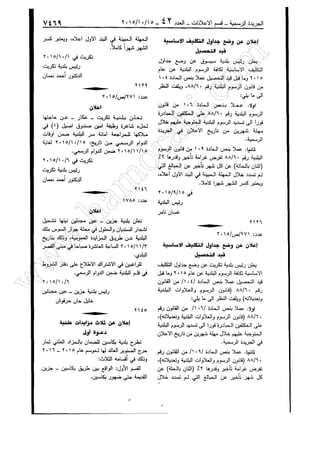 الجريدة الرسمية - قسم الاعلانات - العدد ٤٢ - ٢٠١٥/١٠/١٥
٧٤٦٩
اعلان عن وضع جداول التكليف الاساسية
قيد التحصيل
يعلن رئيس بلدية بيسوق عن وضع جداول
التكليف الاساسية لكافة الرسوم البلدية عن عام
٢٠١٥ وما قبل قيد التحصيل عملا بنص المادة ١٠٤
من قانون الرسوم البلدية رقم ٨٨/٦٠، ويلفت النظر
الى ما يلي:
اولا: عملا بنص المادة ١٠٦ من قانون
الرسوم البلدية رقم ٨٨/٦٠ على المكلفين المبادرة
فورا الى تسديد الرسوم البلدية المتوجبة عليهم خلال
مهلة شهرين من تاريخ الاعلان في الجريدة
الرسمية.
ثانيا: عملا بنص المادة ١٠٩ من قانون الرسوم
البلدية رقم ٨٨/٦٠ تفرض غرامة تأخير وقدرها ٢٪
(اثنان بالمئة) عن كل شهر تأخير عن المبالغ التي
لم تسدد خلال المهلة المبينة في البند الأول اعلاه،
ويعتبر كسر الشهر شهرا كاملا.
في ٢٠١٥/٩/١٥
رئيس البلدية
غسان ثامر
٢١٢٦
عدد: ٢٧١/ص/٢٠١٥
اعلان عن وضع جداول التكليف الاساسية
قيد التحصيل
يعلن رئيس بلدية تكريت عن وضع جداول التكليف
الاساسية لكافة الرسوم البلدية عن عام ٢٠١٥ وما قبل
قيد التحصيل عملا بنص المادة /١٠٤/ من القانون
رقم ٨٨/٦٠ (قانون الرسوم والعلاوات البلدية
وتعديلاته) ويلفت النظر الى ما يلي:
اولا: عملا بنص المادة /١٠٦/ من القانون رقم
٨٨/٦٠ (قانون الرسوم والعلاوات البلدية وتعديلاته)،
على المكلفين المبادرة فورا الى تسديد الرسوم البلدية
المتوجبة عليهم خلال مهلة شهرين من تاريخ الاعلان
في الجريدة الرسمية.
ثانيا: عملا بنص المادة /١٠٩/ من القانون رقم
٨٨/٦٠ (قانون الرسوم والعلاوات البلدية وتعديلاته)،
تفرض غرامة تأخير وقدرها ٢٪ (اثنان بالمئة) عن
كل شهر تأخير عن المبالغ التي لم تسدد خلال
المهلة المبينة في البند الأول اعلاه، ويعتبر كسر
الشهر شهرا كاملا.
تكريت في ٢٠١٥/١٠/١
رئيس بلدية تكريت
الدكتور أحمد نعمان
٢١٢٩
عدد: ٢٧٢/ص/٢٠١٥
اعلان
تعلن بلدية تكريت - عكار - عن حاجتها
لملء شاغرة وظيفة امين صندوق اصيل (١) في
ملاكها، للمراجعة امانة سر البلدية ضمن اوقات
الدوام الرسمي، من تاريخ: ٢٠١٥/١٠/١٥ لغاية
٢٠١٥/١١/١٥ ضمن الدوام الرسمي.
تكريت في ٢٠١٥/١٠/٦
رئيس بلدية تكريت
الدكتور أحمد نعمان
٢١٤٦
عدد: ١٧٨٥
اعلان
تعلن بلدية جزين - عين مجدلين نيتها تشحيل
أشجار السنديان والملول في محلة جوار السوس ملك
البلدية عن طريق المزايدة العمومية، وذلك بتاريخ
٢٠١٥/١١/٣ الساعة العاشرة صباحا في مبنى القصر
البلدي.
للراغبين في الاشتراك الاطلاع على دفتر الشروط
في قلم البلدية ضمن الدوام الرسمي.
٢٠١٥/١٠/٦
رئيس بلدية جزين - عين مجدلين
خليل جان حرفوش
٢١٤٥
اعلان عن ثلاث مزايدات علنية
دعوة أولى
تطرح بلدية بكاسين للضمان بالمزاد العلني ثمار
حرج الصنوبر العائد لها لموسم عام ٢٠١٥ - ٢٠١٦
وذلك في أقسامه الثلاث:
القسم الأول: الواقع بين طريق بكاسين - جزين
القديمة حتى ضهور بكاسين.